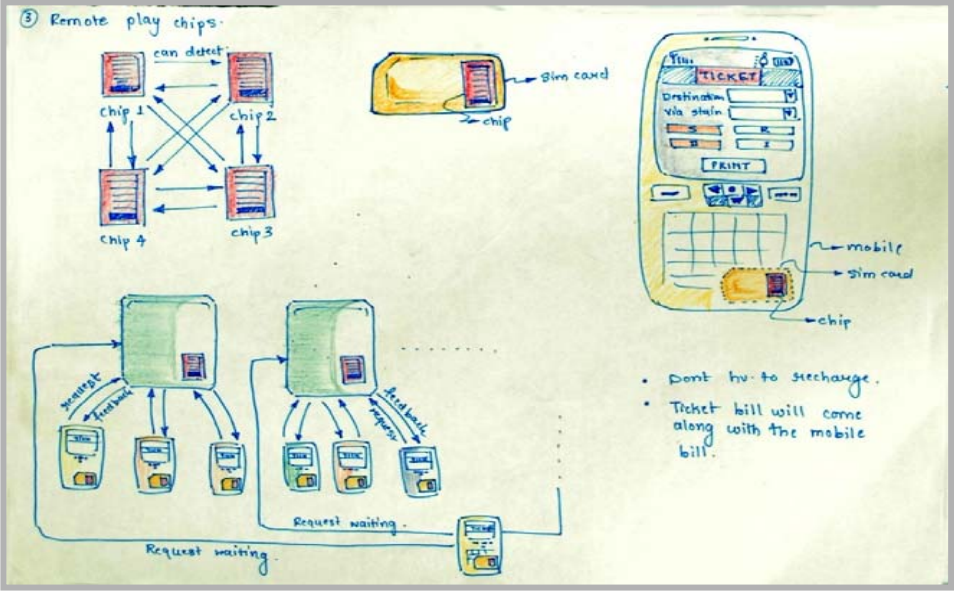 ③ Remote play chips.
can detect
chip 1
chip 2
chip 4
chip 3
sim card
chip
TICKET
Destination
via stain
S
R
PRINT
mobile
sim card
chip
request
feedback
feedback
request
Request waiting.
Request waiting.
• Dont hv. to recharge.
• Ticket bill will come
along with the mobile
bill.